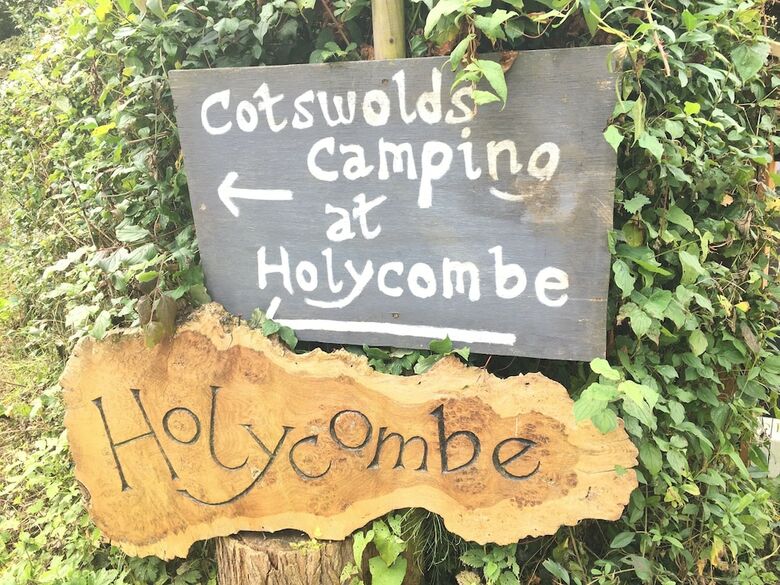 Cotswolds
Camping
← at
Holycombe
Holycombe